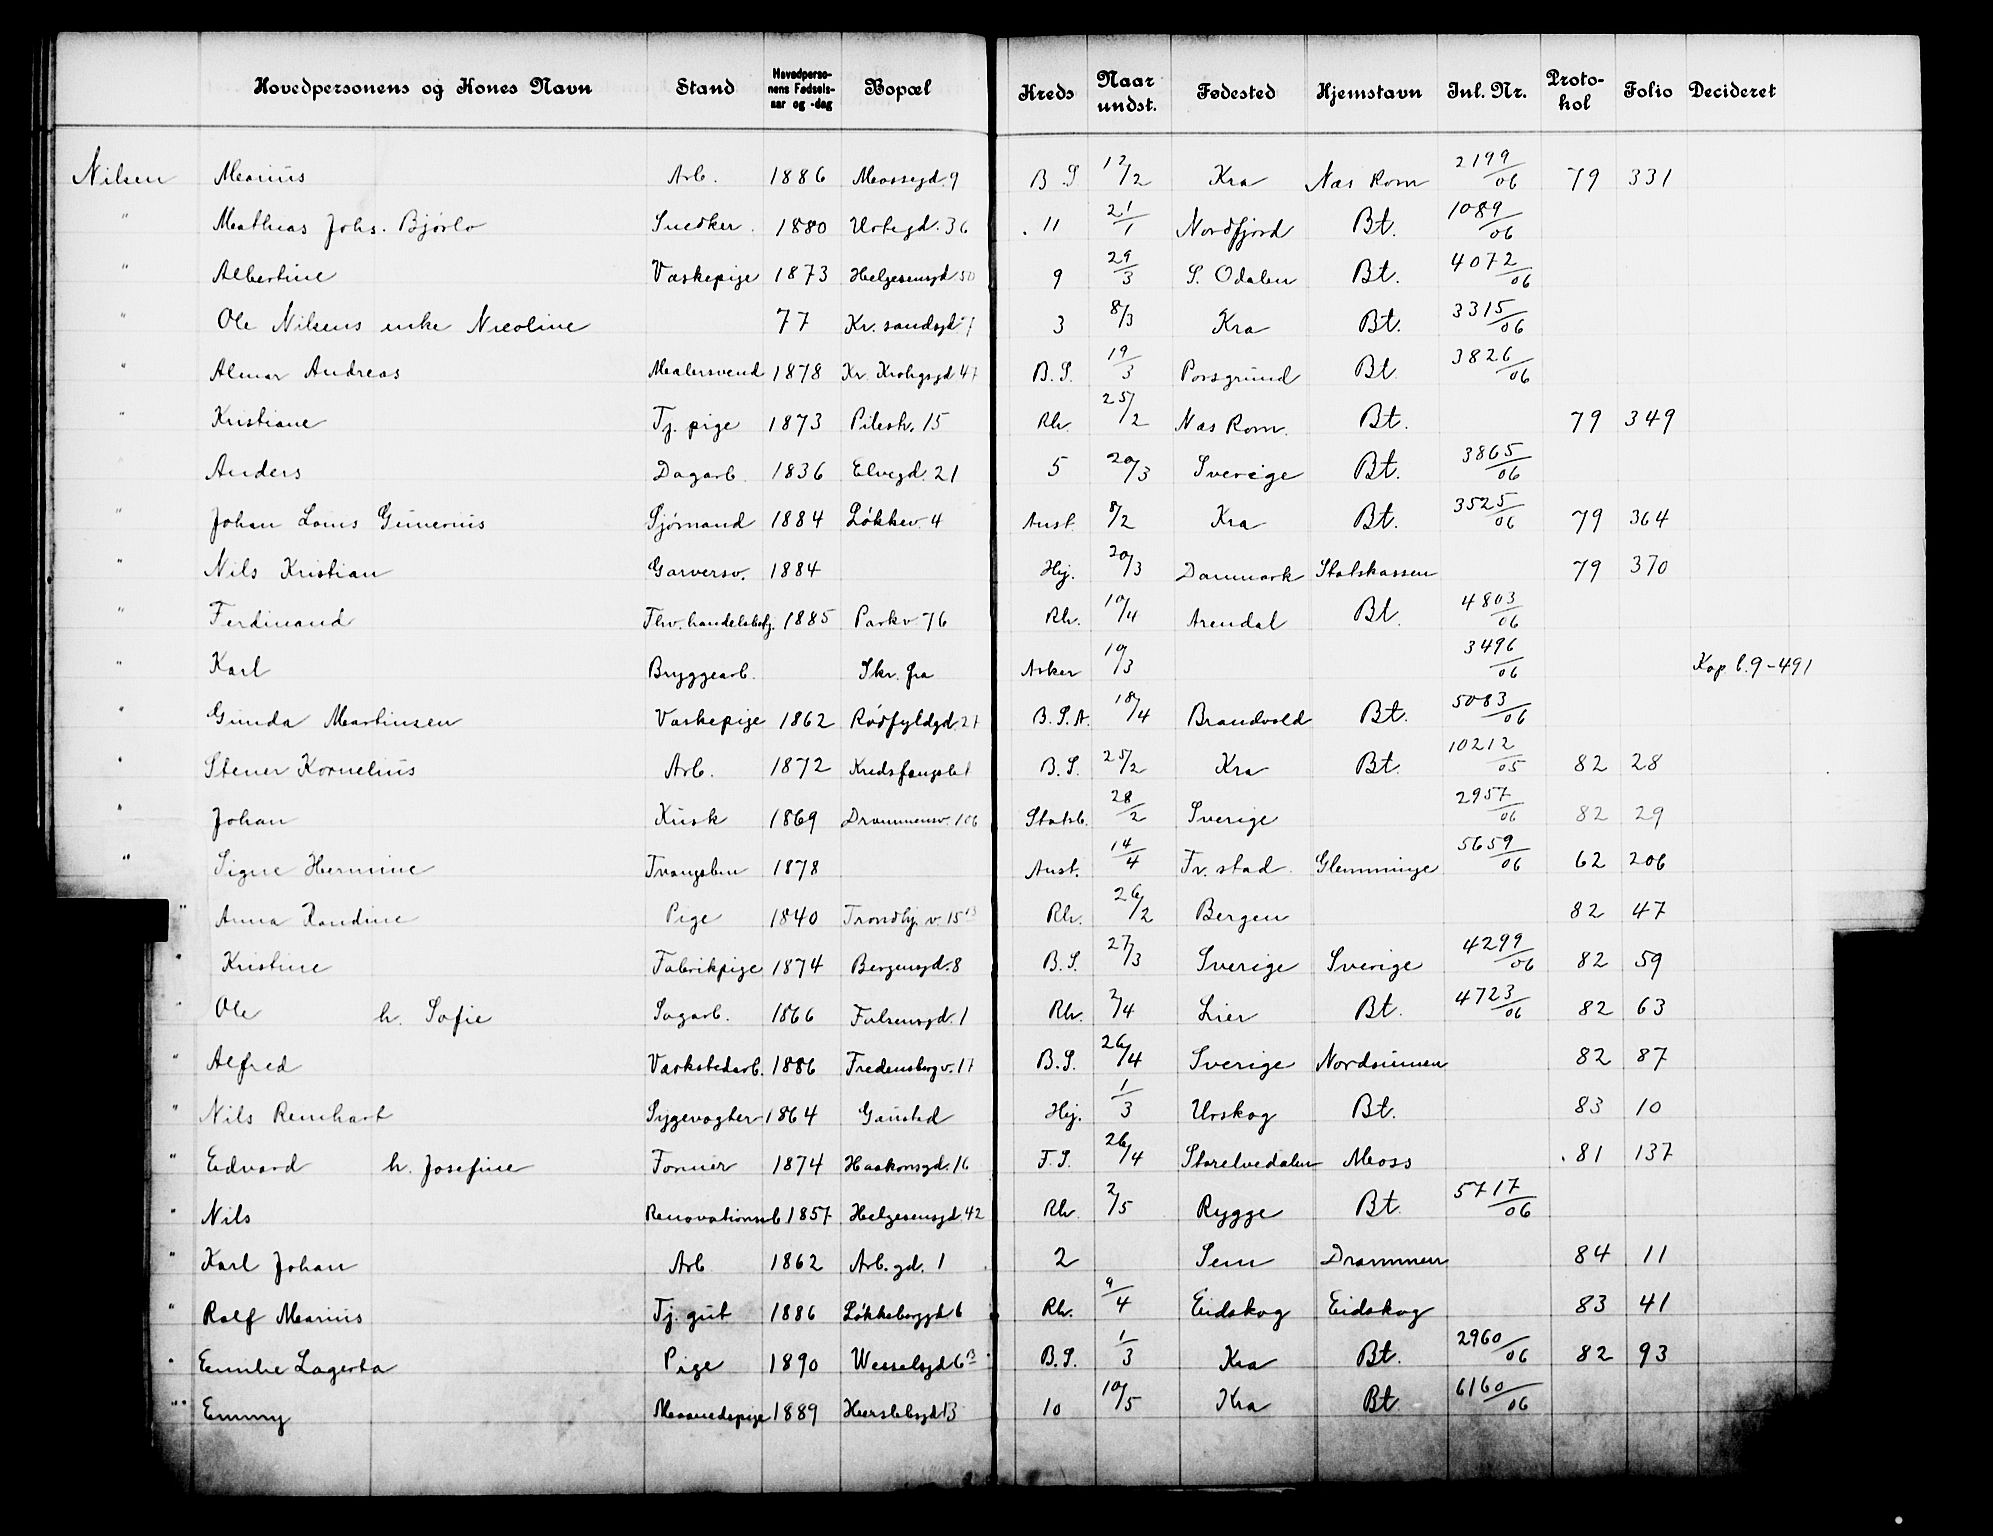 Hovedpersonens og Kones Navn Stand Hovedpersonens Fødselsaar og -dag Bopæl Kreds Naar undst. Fødested Hjemstavn Inl. Nr. Protokol Folio Decideret
Nilsen Marius Arb. 1886 Mossegd. 9 B S 12/2 Kra Næs Rom 2199/06 79 331
" Mathias Johs. Bjørlo Snedker 1880 Urtegd. 36 11 21/1 Nordfjord Bt. 1089/06
" Albertine Vaskepige 1873 Helgesensgd 50 9 29/3 S. Odalen Bt. 4072/06
" Ole Nilsens enke Nicoline 77 Kr. sandsgd 3 8/3 Kra Bt. 3315/06
" Almar Andreas Malersvend 1878 Kr. Krohgsgd 47 B. S. 19/3 Porsgrund Bt 3826/06
" Kristiane Tj. pige 1873 Pilestr. 15 Rh. 25/2 Næs Rom. Bt. 79 349
Anders Dagarb. 1836 Elvegd. 21 5 20/3 Sverige Bt. 3865/06
" Johan Louis Gunerius Sjømand 1884 Løkkev. 4 Aust. 8/2 Kra Bt. 3525/06 79 364
" Nils Kristian Garversv. 1884 Hj. 20/3 Danmark Statskassen 79 370
" Ferdinand Fhv. handelsbetj. 1885 Parkv 76 Rh. 10/4 Arendal Bt 4803/06
" Karl Bryggearb. Skr. fra Aker 10/3 3496/06 Kop b. 9-491
" Gunda Martinsen Vaskepige 1862 Rødfyldgd. 21 B. S. A. 18/4 Brandvold Bt. 5083/06
" Stener Kornelius Arb. 1872 Kredsfængslet B. S. 25/2 Kra Bt. 10212/05 82 28
" Johan Kusk 1869 Drammensv. 106 Statsb. 28/2 Sverige 2957/06 82 29
" Signe Hermine Tvangslem 1878 Aust. 14/4 Fr. stad Glemminge 5659/06 62 206
" Anna Randine Pige 1840 Trondhj. v. 15 B Rh. 26/2 Bergen 82 47
" Kristine Fabrikpige 1874 Bergensgd. 8 B. S. 27/3 Sverige Sverige 4299/06 82 59
" Ole h. Sofie Sagarb. 1866 Falsensgd. 1 Rh. 2/4 Lier Bt. 4723/06 82 63
" Alfred Værkstedarb. 1886 Fredensborgv. 17 B. S. 26/4 Sverige Nordsinnen 82 87
" Nils Reinhart Sygevogter 1864 Gaustad Hj. 1/3 Urskog Bt. 83 10
" Edvard h. Josefine Former 1874 Haakonsgd. 16 F. S. 26/4 Storelvedalen Moss 81 137
" Nils Renovationsarb 1857 Helgesensgd. 42 Rh. 2/5 Rygge Bt. 5717/06
" Karl Johan Arb 1862 Arb. gd. 1 2 Sem Drammen 84 11
" Rolf Marius Tj. gut 1886 Løkkeberggd 6 Rh. 9/4 Eidskog Eidskog 83 41
" Emilie Lagerta Pige 1890 Wesselsgd 6 B B. S. 1/3 Kra Bt. 2960/06 82 93
" Emmy Maanedspige 1889 Herslebsgd 13 10 10/5 Kra Bt. 6160/06